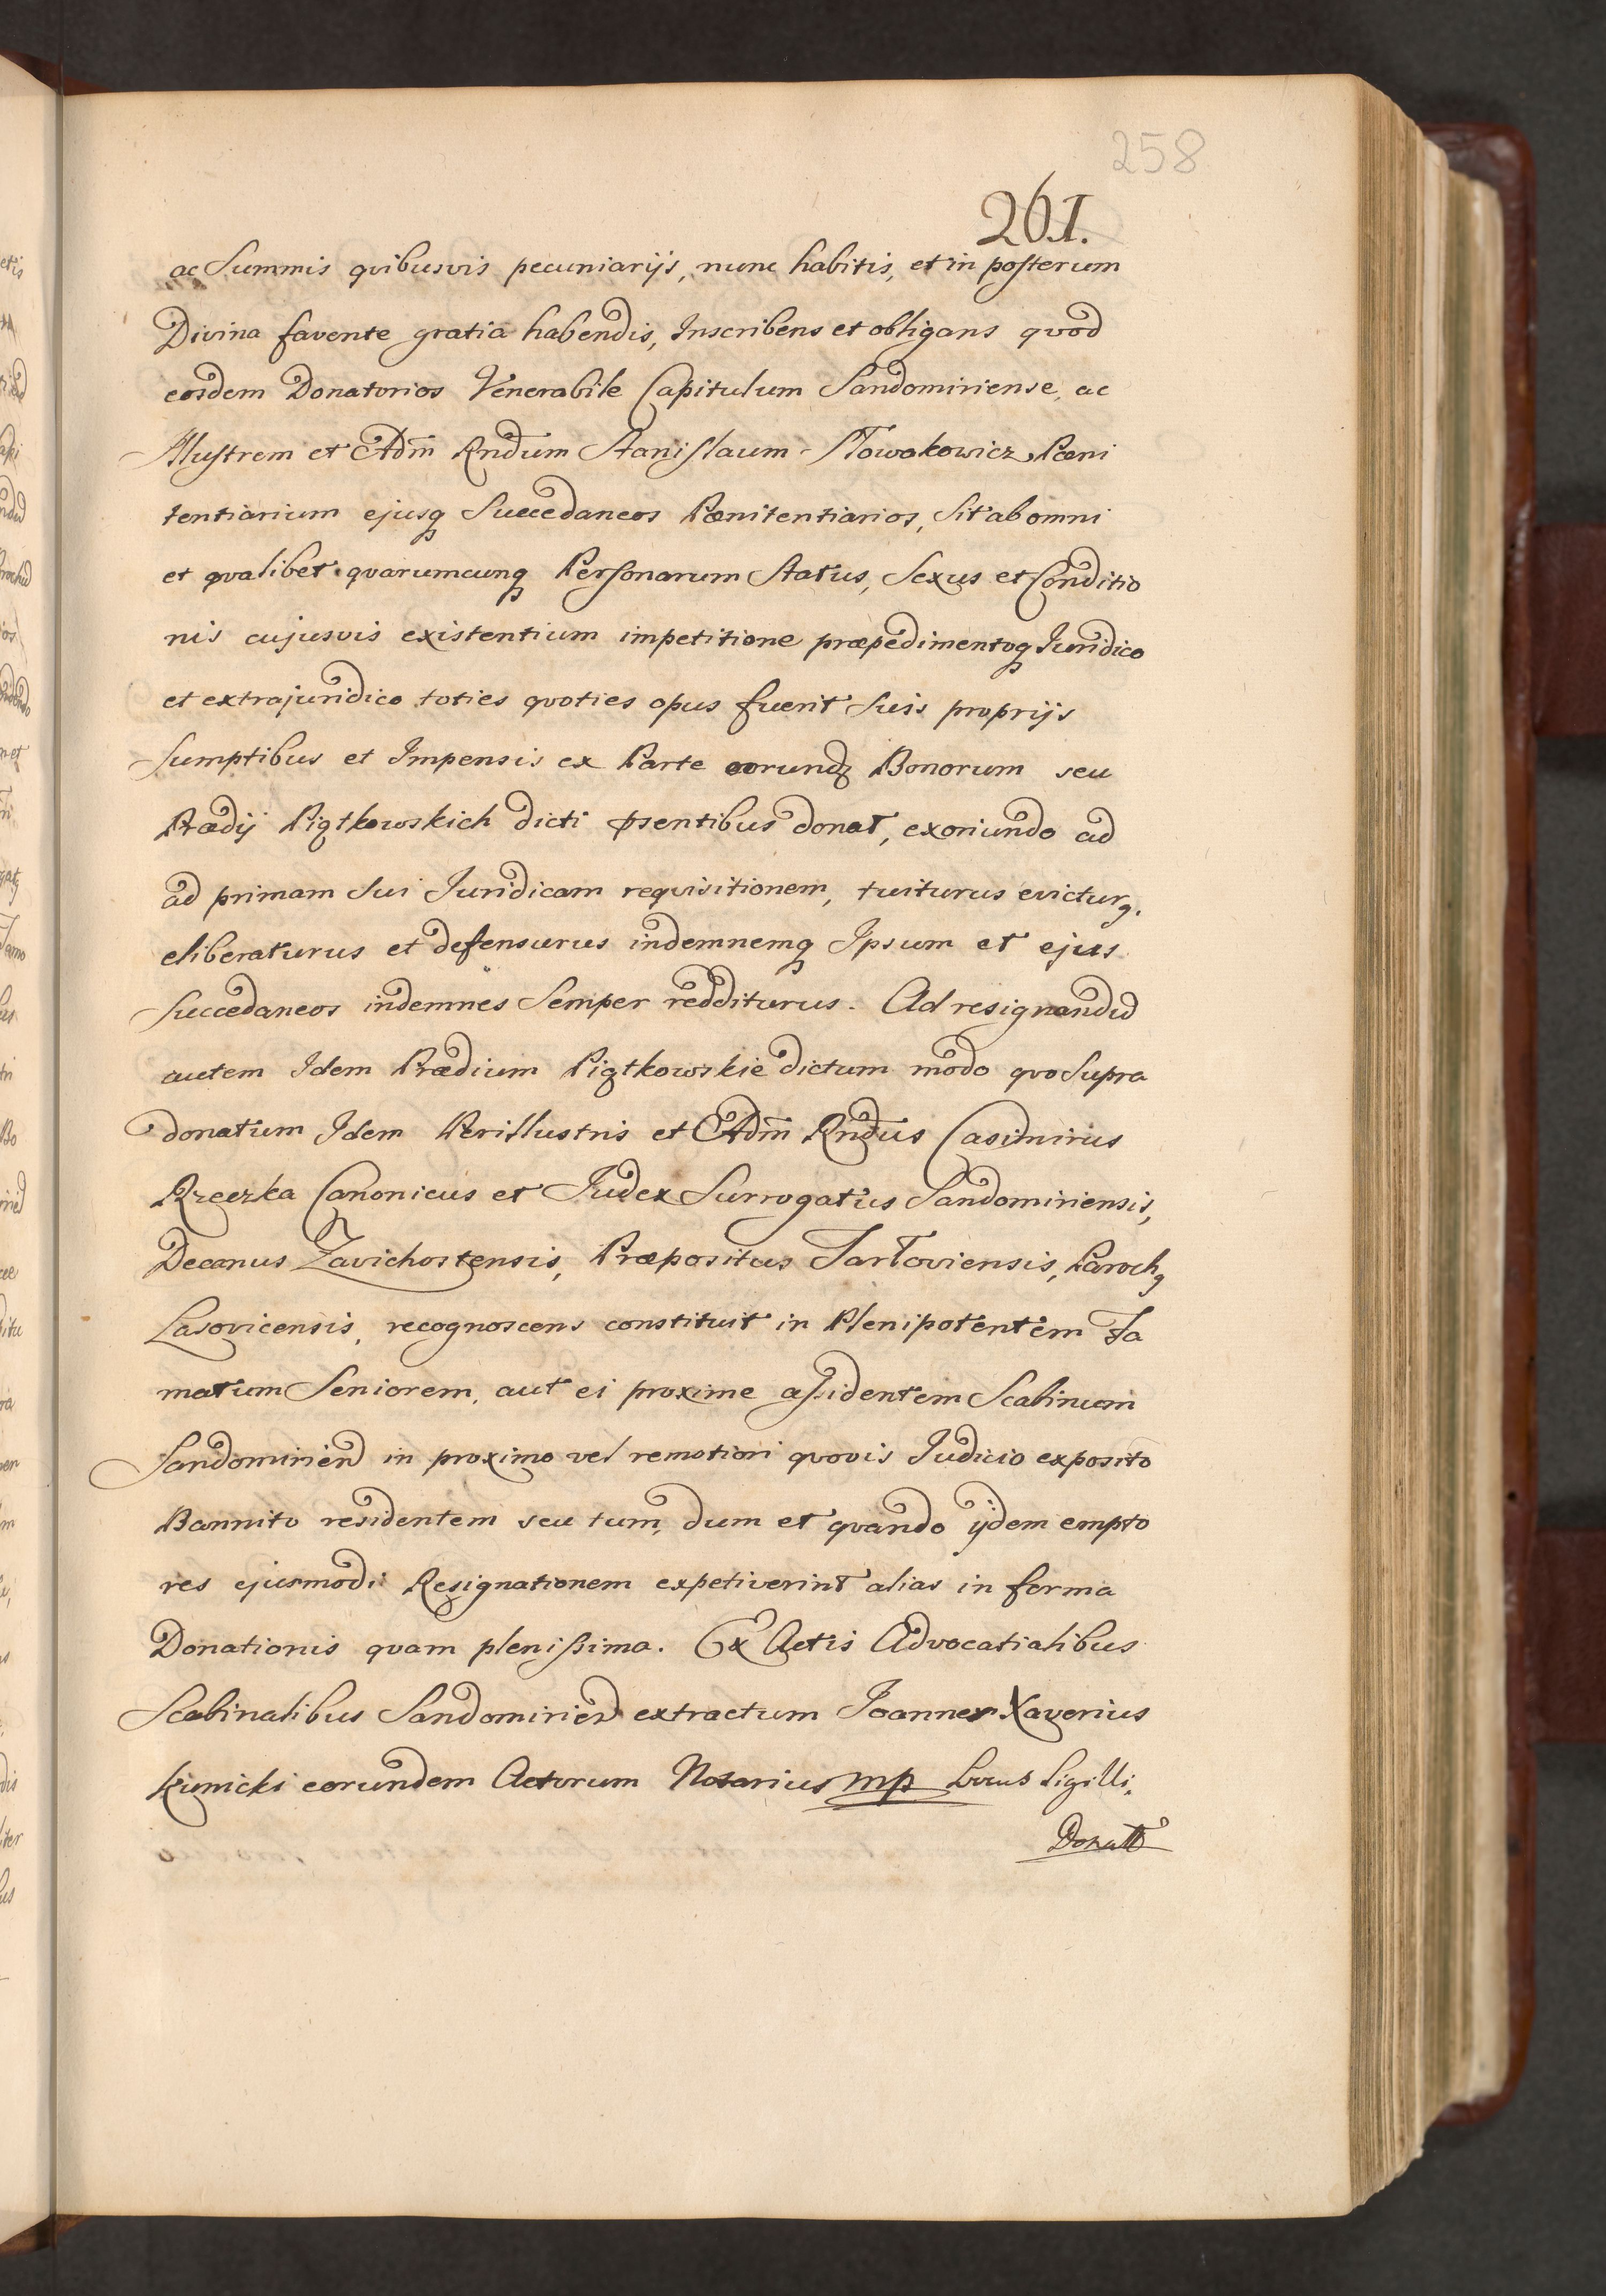 258
261.
ac Summis qvibusvis pecuniarijs, nunc habitis, et in posterum
Divina favente gratia habendis, Inscribens et obligans qvod
eosdem Donatorios Venerabile Capitulum Sandomiriense, ac
Illustrem et Adm̃ Rndum Stanislaum Słowakowicz Pæni
tentiarium ejusq Succedaneos Pænitentiarios, Sit ab omni
et qvalibet qvarumcunq Personarum Status, Sexus et Conditio
nis cujusvis existentium impetitione præpedimentoq Juridico
et extrajuridico toties qvoties opus fuerit Suis proprijs
Sumptibus et Impensis ex Parte eorundꝫ Bonorum seu
Prædij Piątkowskich dicti pꝛsentibus donat, exoriundo ad
ad primam Sui Juridicam reqvisitionem, tuiturus evicturq,
eliberaturus et defensurus indemnemq Ipsum et ejus
Succedaneos indemnes Semper redditurus. Ad resignandũ
autem Idem Prædium Piątkowskie dictum modo qvo Supra
donatum Idem Perillustris et Adm̃ Rndus Casimirus
Rzeczka Canonicus et Judex Surrogatus Sandomiriensis,
Decanus Zavichostensis, Præpositus Tarłoviensis, Parochq
Lasovicensis, recognoscens constituit in Plenipotentem Fa
matum Seniorem, aut ei proxime assidentem Scabinum
Sandomirien in proximo vel remotiori qvovis Judicio exposito
Bannito residentem seu tum, dum et qvando ijdem empto
res ejusmodi Resignationem expetiverint alias in forma
Donationis qvam plenissima. Ex Actis Advocatialibus
Scabinalibus Sandomirien extractum Joannes Xaverius
Kunicki eorundem Actorum Notarius mp Locus Sigilli.
Donatt